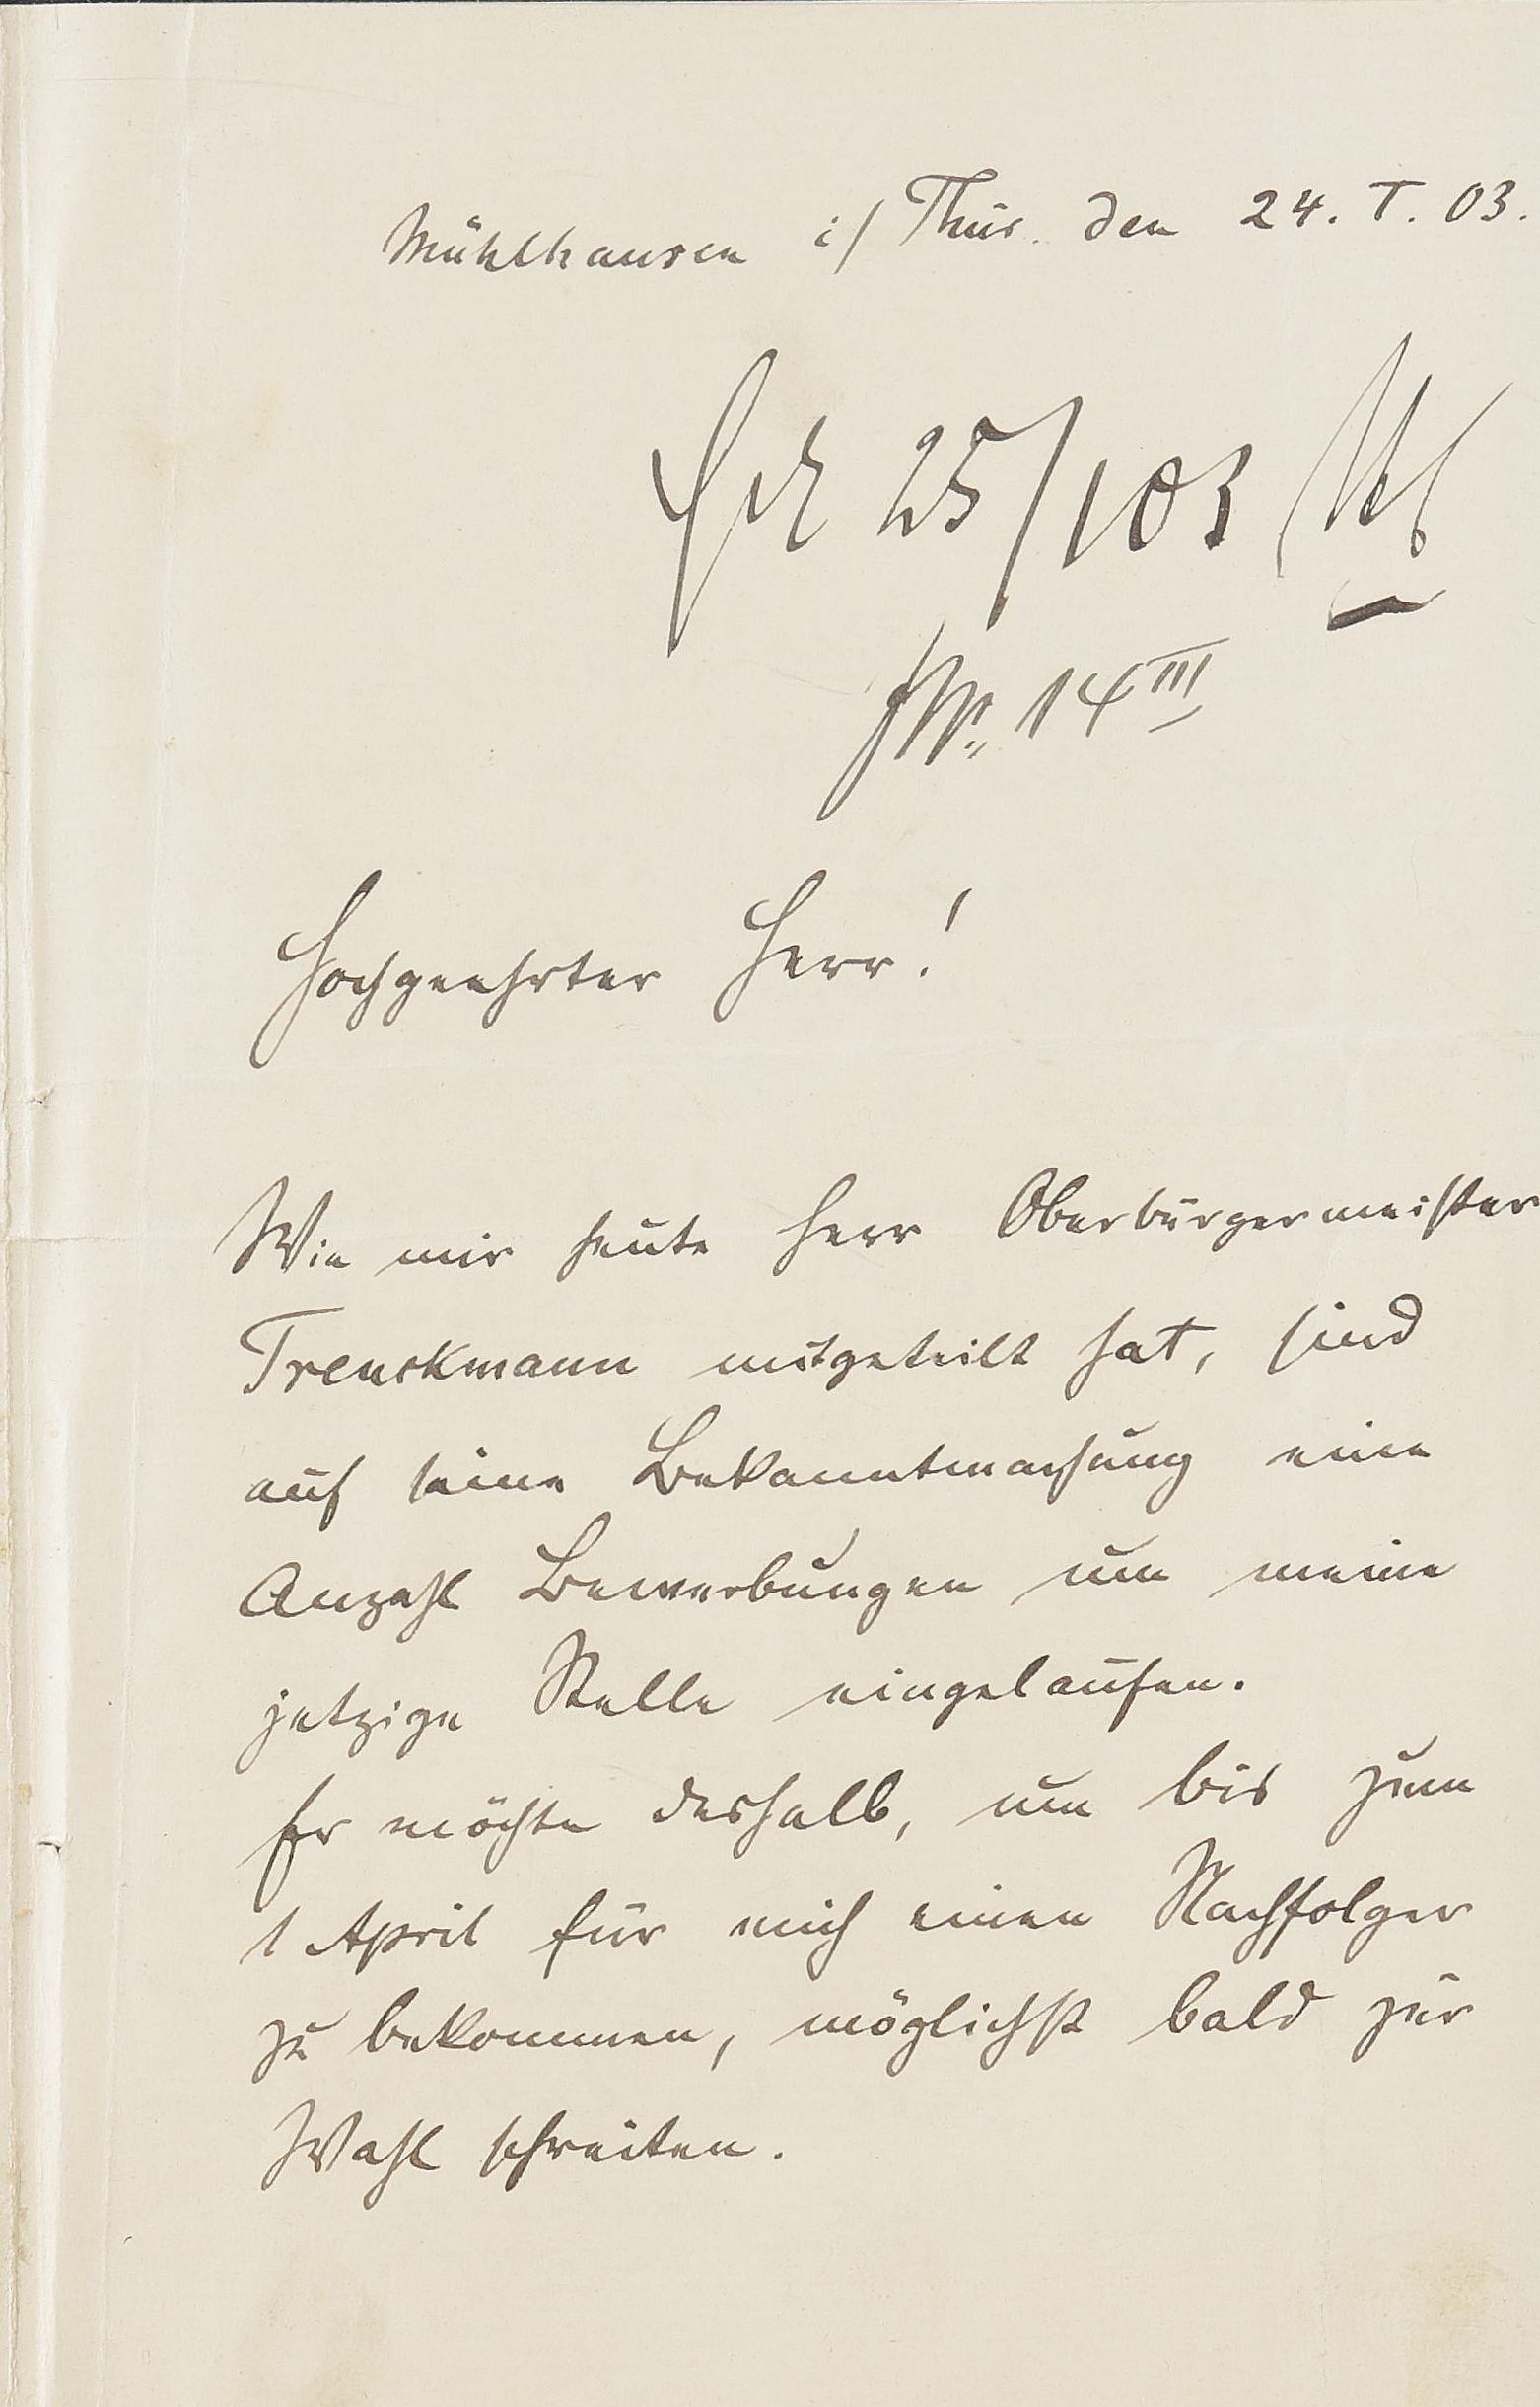 Mühlhausen i/ Thür. den 24. I. 03.
25/1 03
14 III
Hochgeehrter Herr!
Wie mir heute Herr Oberbürgermeister
Trenckmann mitgeteilt hat, sind
auf seine Bekanntmachung eine
Anzahl Bewerbungen um meine
jetzige Stelle eingelaufen.
Er möchte deshalb, um bis zum
1 April für mich einen Nachfolger
zu bekommen, möglichst bald zur
Wahl schreiten.